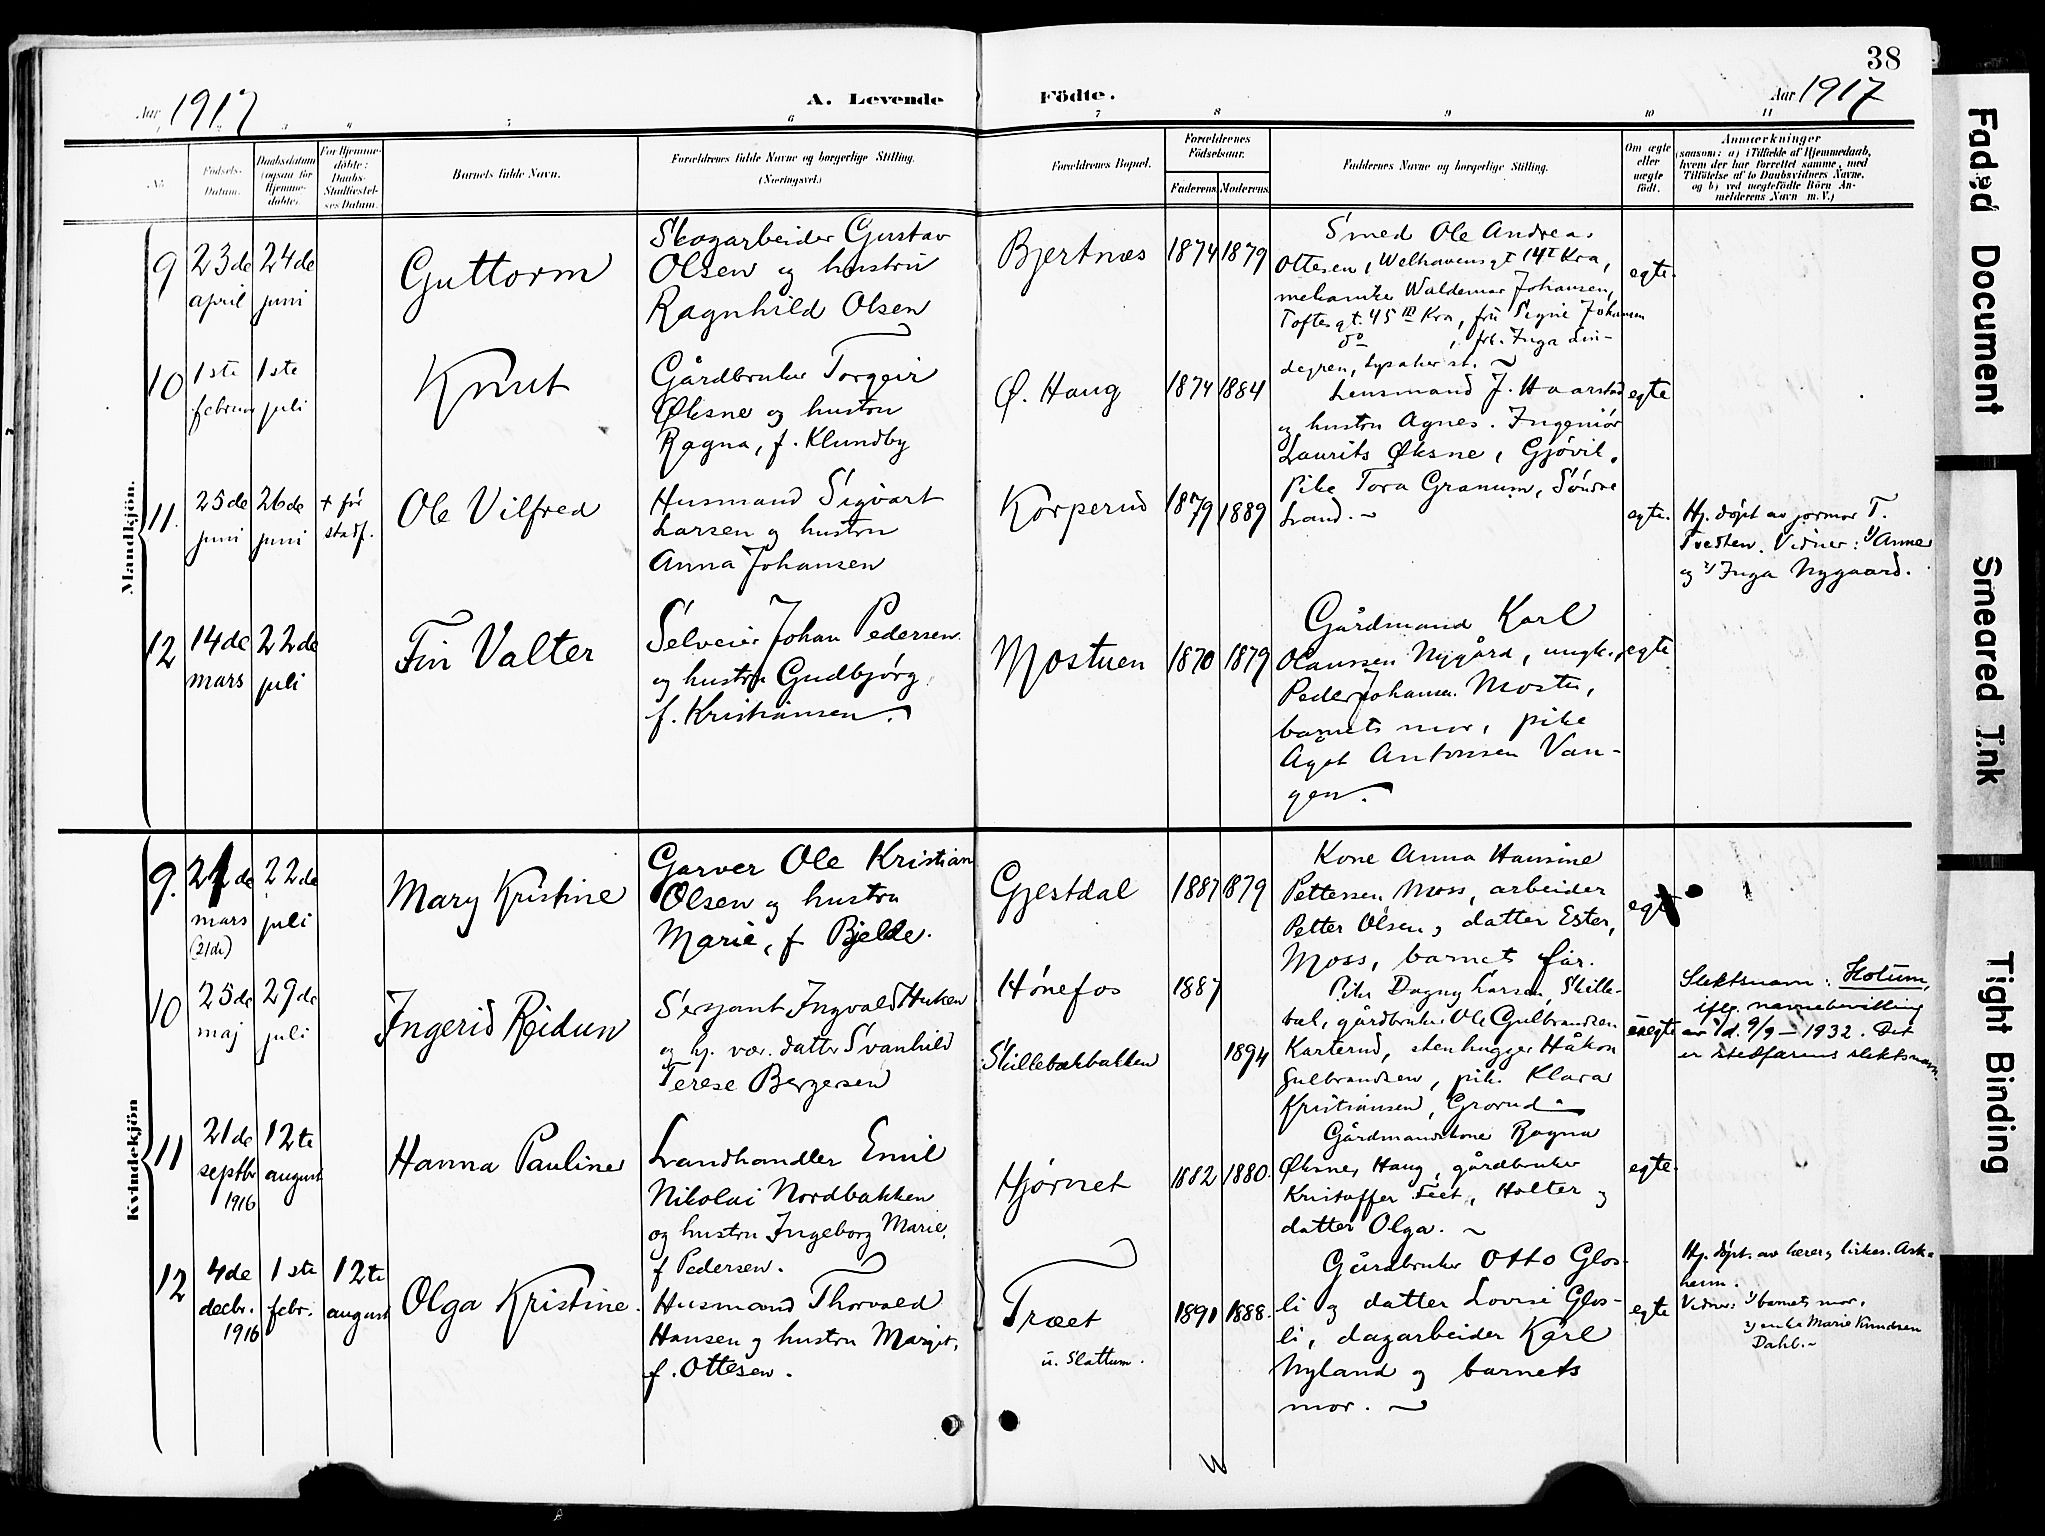 38
Aar 1917
A. Levende Födte.
Aar 1917
3 4 5 6 7 8 9 10 11
No.
Fødsels-
Datum.
Daabsdatum
(ogsaa for
Hjemme-
døbte).
For Hjemme-
døbte:
Daabs-
Stadfæstel-
ses Datum.
Barnets fulde Navn.
Forældrenes fulde Navne og borgerlige Stilling.
(Næringsvei.)
Forældrenes Bopæl.
Forældrenes
Födselsaar.
Faderens. Moderens.
Faddernes Navne og borgerlige Stilling.
Om ægte
eller
uægte
födt.
Anmærkninger
(saasom: a) i Tilfælde af Hjemmedaab,
hvem der har forrettet samme, med
Tilføielse af to Daabsvidners Navne,
og b) ved uægtefödte Börn An-
melderens Navn m. V.)
Mandkjön.
9
23de
april
24de
juni
Guttorm
Skogarbeider Gustav
Olsen og hustru
Ragnhild Olsen
Bjertnæs
1874 1879
Smed Ole Andreas
Ottesen, Welhavensgt 14 I Kra,
mekaniker Waldemar Johansen,
Toftesgt. 45 III Kra, fru Signe Johansen
do , frk. Inga Lin-
degren, Lysaker st.
egte.
10
1ste
februar
1ste
juli
Knut
Gårdbruker Torgeir
Øksne og hustru
Ragna, f. Klundby
Ø. Haug
1874 1884
Lensmand J. Haarstad
og hustru Agnes. Ingeniør
Laurits Øksne, Gjøvik.
Pike Tora Granum, Søndre
Land.
egte
11.
25de
juni
26de
juni
+ før
stadf.
Ole Vilfred
Husmand Sigvart
Larsen og hustru
Anna Johansen
Korperud
1879 1889
egte.
Hj. døpt av jormor T.
Tvedten. Vidner: 1) Anne
og 2) Inga Nygaard.
12
14de
mars
22de
juli
Fin Valter
Selveier Johan Pedersen
og hustru Gudbjørg,
f. Kristiansen.
Mostuen
1870 1879
Gårdmand Karl
Olaussen Nygård, ungk.
Peder Johansen Mostu,
barnets mor, pike
Agot Antonsen Van-
gen.
egte
Kvindekjön
9.
21de
mars
(21de)
22de
juli
Mary Kristine
Garver Ole Kristian
Olsen og hustru
Marie, f. Bjelde.
Gjestdal
1887 1879
Kone Anna Hansine
Pettersen, Moss, arbeider
Petter Olsen, datter Ester,
Moss, barnets far.
egte
10
25de
maj
29de
juli
Ingerid Reidun
Sersjant Ingvald Huken
og hj. vær. datter Svanhild
Terese Bergersen
Hønefos
Skillebækbakken
1887
1894
Pike Dagny Larsen, Skille-
bæk, gårdbruker Ole Gulbrandsen
Karterud, stenhugger Håkon
Gulbrandsen, pike Klara
Kristiansen, Grorud
uegte
Slektsnavn: Hotum,
iflg. navnebevilling
av d. 9/9 - 1932. Det
er stedfarens slektsnavn.
11
21de
septbr
1916
12te
august
Hanna Pauline
Landhandler Emil
Nikolai Nordbakken
og hustru Ingeborg Marie,
f Pedersen.
Hjørnet
1882 1880.
Gårdmandskone Ragna
Øksne, Haug, gårdbruker
Kristoffer Teet, Holter og
datter Olga.
egte.
12
4de
decbr.
1916
1ste
febr.
12te
august
Olga Kristine.
Husmand Thorvald
Hansen og hustru Margit,
f. Ottesen.
Træet
u. Slattum.
1891 1888.
Gårdbruker Otto Glos-
li og datter Lovise Glos-
li, dagarbeider Karl
Nyland og barnets
mor.
egte
Hj. døpt. av lærer, kirkes. Ask-
heim.
Vidner: 1) barnets mor,
2) enke Marie Knudsen
Dahl.
Faded Document
Smeared Ink
Tight Binding